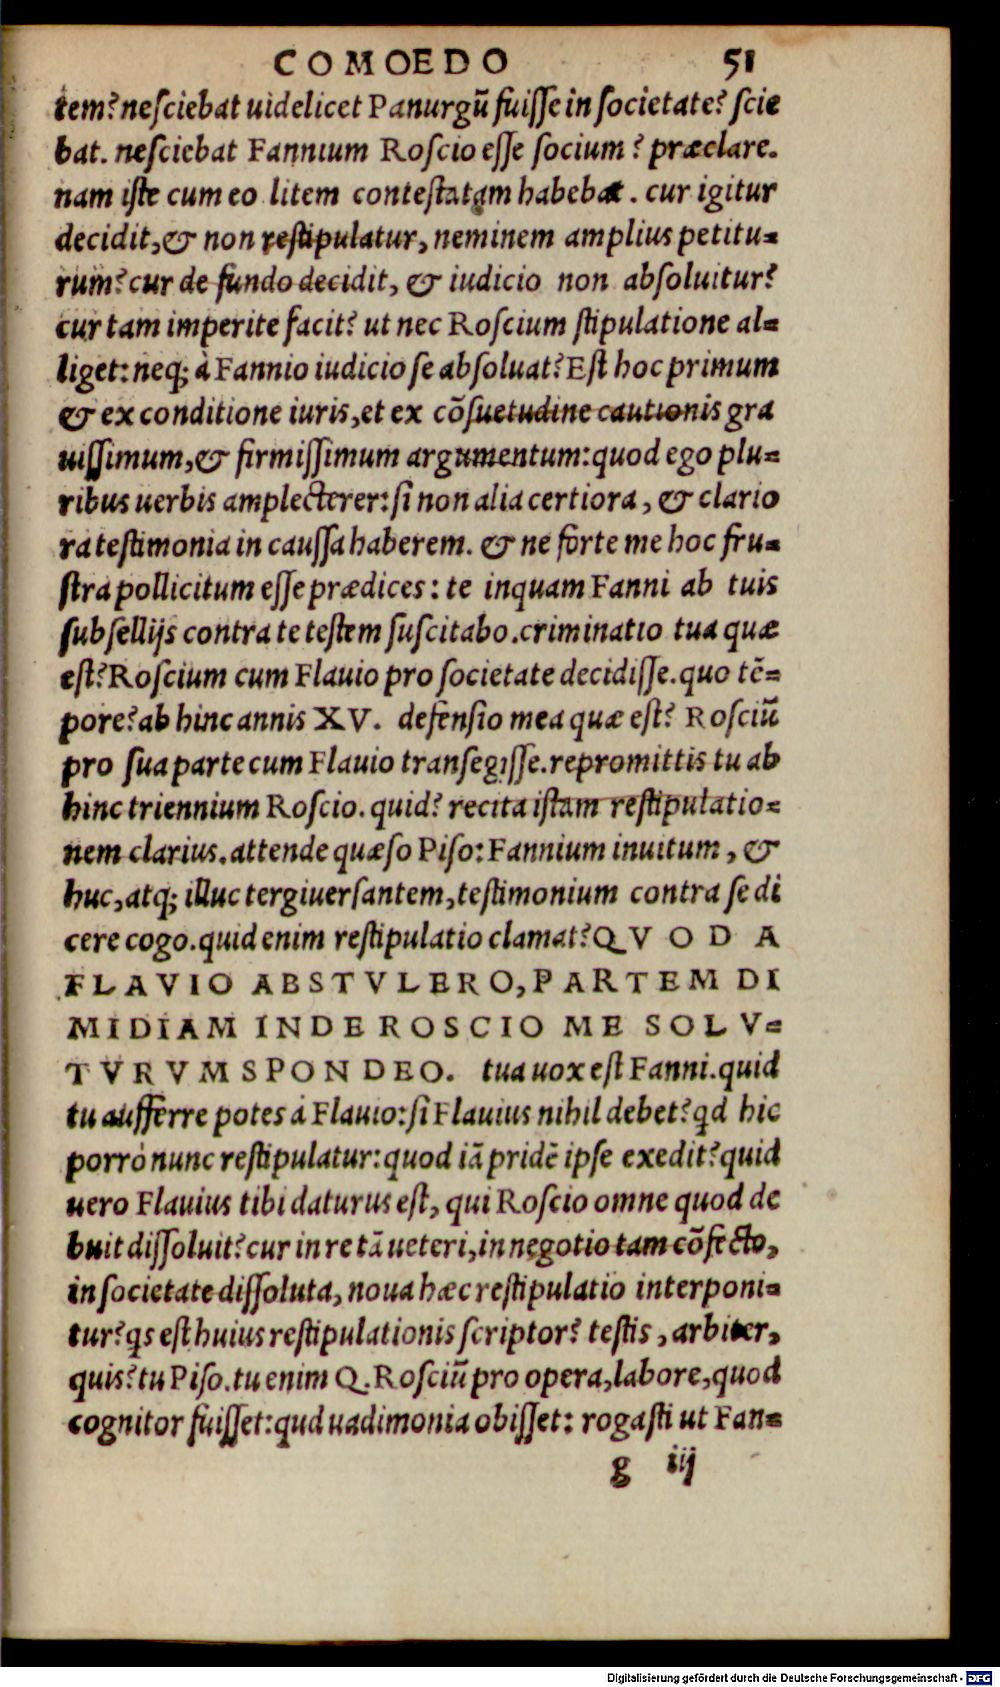 COMOEDO 51
tem? nesciebat uidelicet Panurgū fuisse in societate? scie
bat. nesciebat Fannium Roscio esse socium? præclare.
nam iste cum eo litem contestatam habebat. cur igitur
decidit, & non restipulatur, neminem amplius petitu-
rum? cur de fundo decidit, & iudicio non absoluitur?
cur tam imperite facit? ut nec Roscium stipulatione al-
liget: neq; à Fannio iudicio se absoluat? Est hoc primum
& ex conditione iuris, et ex cōsuetudine cautionis gra
uissimum, & firmissimum argumentum: quod ego plu-
ribus uerbis amplecterer: si non alia certiora, & clario
ra testimonia in caussa haberem. & ne forte me hoc fru-
stra pollicitum esse prædices: te inquam Fanni ab tuis
subsellijs contra te testem suscitabo. criminatio tua quæ
est? Roscium cum Flauio pro societate decidisse. quo tē-
pore? ab hinc annis XV. defensio mea quæ est? Rosciū
pro sua parte cum Flauio transegisse. repromittis tu ab
hinc triennium Roscio. quid? recita istam restipulatio-
nem clarius. attende quæso Piso: Fannium inuitum, &
huc, atq; illuc tergiuersantem, testimonium contra se di
cere cogo. quid enim restipulatio clamat? QVOD A
FLAVIO ABSTVLERO, PARTEM DI
MIDIAM INDE ROSCIO ME SOLV-
TVRVM SPONDEO. tua uox est Fanni. quid
tu aufferre potes à Flauio: si Flauius nihil debet? qd hic
porrò nunc restipulatur: quod iā pridē ipse exedit? quid
uero Flauius tibi daturus est, qui Roscio omne quod de
buit dissoluit? cur in re tā ueteri, in negotio tam cōfecto,
in societate dissoluta, noua hæc restipulatio interponi-
tur? qs est huius restipulationis scriptor? testis, arbiter,
quis? tu Piso. tu enim Q. Rosciū pro opera, labore, quod
cognitor fuisset: qud uadimonia obisset: rogasti ut Fan-
g iij
Digitalisierung gefördert durch die Deutsche Forschungsgemeinschaft - DFG